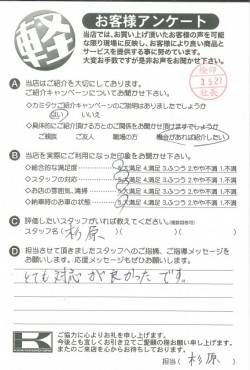 軽
お客様アンケート
当店では、お買い上げ頂いたお客様の声を可能
な限り現場に反映し、お客様により良い商品と
サービスを提供する事に努めています。
大変お手数ですが是非お声をお聞かせ下さい。
検印
3.5.27
社長
A 当店はご紹介を大切にしております。
ご紹介キャンペーンについてお聞かせ下さい。
◇カミタケご紹介キャンペーンのご説明はありましたでしょうか
はい いいえ
◇具体的にご紹介頂ける方との関係をお聞かせ頂けますでしょうか
ご親族 ご友人 職場の方 機会があれば紹介したい
B 当店を実際にご利用になった印象をお聞かせ下さい。
◇総合的な満足度 5.大満足 4.満足 3.ふつう 2.やや不満 1.不満
◇スタッフの対応 5.大満足 4.満足 3.ふつう 2.やや不満 1.不満
◇お店の雰囲気、清掃 5.大満足 4.満足 3.ふつう 2.やや不満 1.不満
◇納車時のお車の状態 5.大満足 4.満足 3.ふつう 2.やや不満 1.不満
C 評価したいスタッフがいれば教えてください。(複数回答可)
スタッフ名( 杉原 )
D 担当させて頂きましたスタッフへのご指摘、ご指導メッセージを
お願いします。応援メッセージもぜひお願いします。
とても対応が良かったです。
K
ご協力に心よりお礼を申し上げます。
今後とも宜しくお引き立てご愛顧の程お願い申し上げます。
またのご来店を心からお待ちしております。
担当( 杉原 )